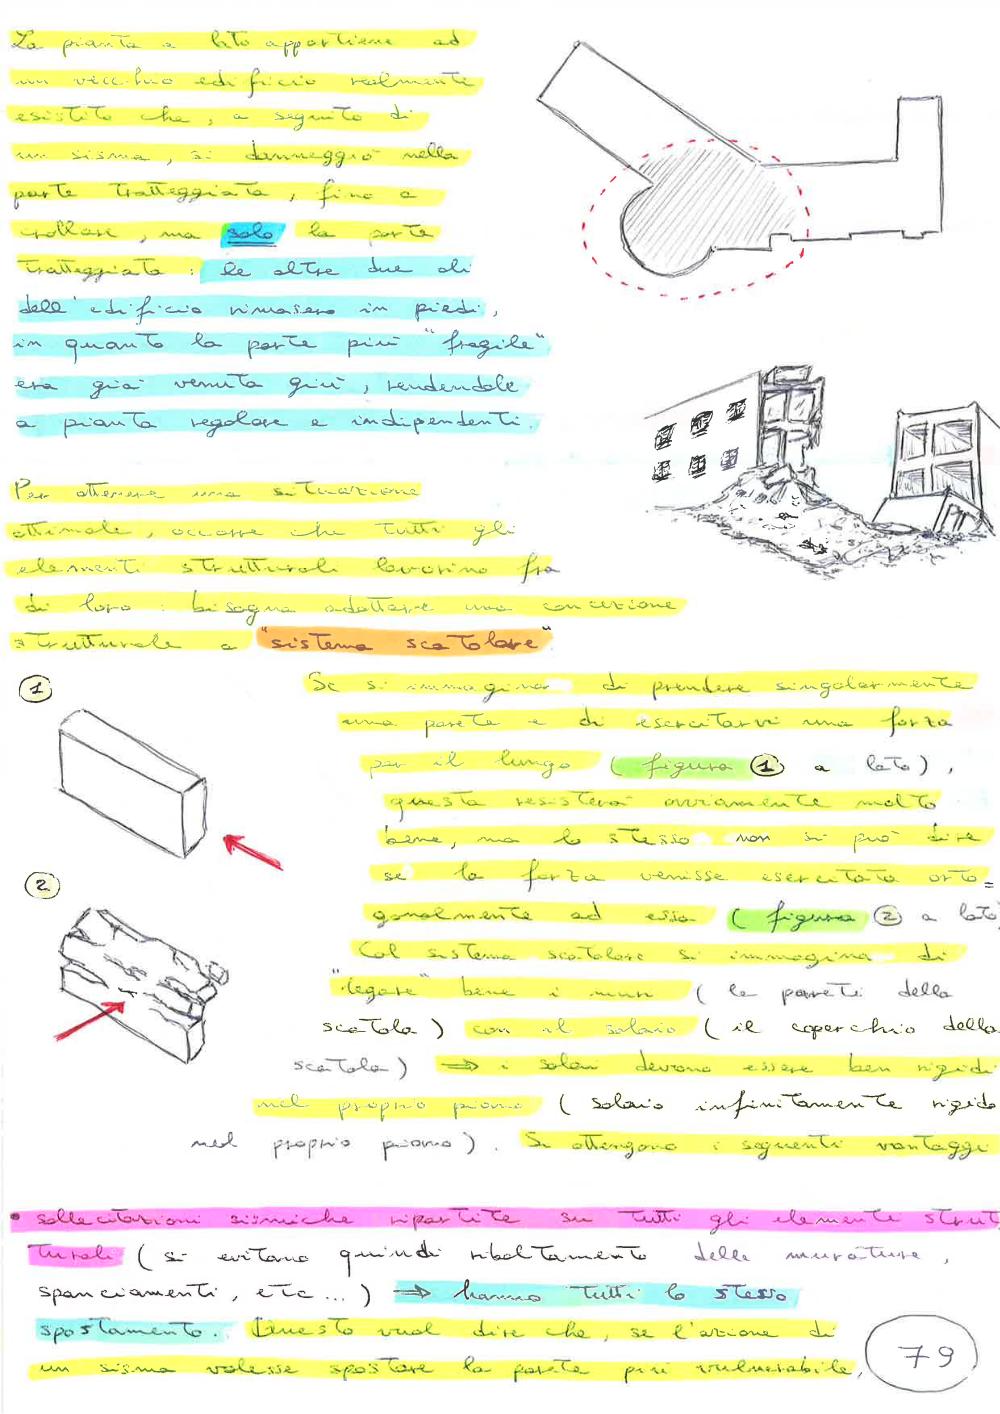 La pianta a lato appartiene ad
un vecchio edificio realmente
esistito che, a seguito di
un sisma, si danneggiò nella
parte tratteggiata, fino a
crollare, ma solo la parte
tratteggiata: le altre due ali
dell'edificio rimasero in piedi,
in quanto la parte più "fragile"
era già venuta giù, rendendole
a pianta regolare e indipendenti.
Per ottenere una situazione
ottimale, occorre che tutti gli
elementi strutturali lavorino fra
di loro: bisogna adottare una concezione
strutturale a "sistema scatolare"
1
Se si immagina di prendere singolarmente
una parete e di esercitarvi una forza
per il lungo (figura 1 a lato),
questa resisterà ovviamente molto
bene, ma lo stesso non si può dire
se la forza venisse esercitata orto=
2
gonalmente ad essa (figura 2 a lato)
Col sistema scatolare si immagina di
"legare" bene i muri (le pareti della
scatola) con il solaio (il coperchio della
scatola) ⇒ i solai devono essere ben rigidi
nel proprio piano (solaio infinitamente rigido
nel proprio piano). Si ottengono i seguenti vantaggi
• sollecitazioni sismiche ripartite su tutti gli elementi strut
turali (si evitano quindi ribaltamento delle murature,
spanciamenti, etc...) ⇒ hanno tutti lo stesso
spostamento. Questo vuol dire che, se l'azione di
un sisma volesse spostare la parete più vulnerabile,
79